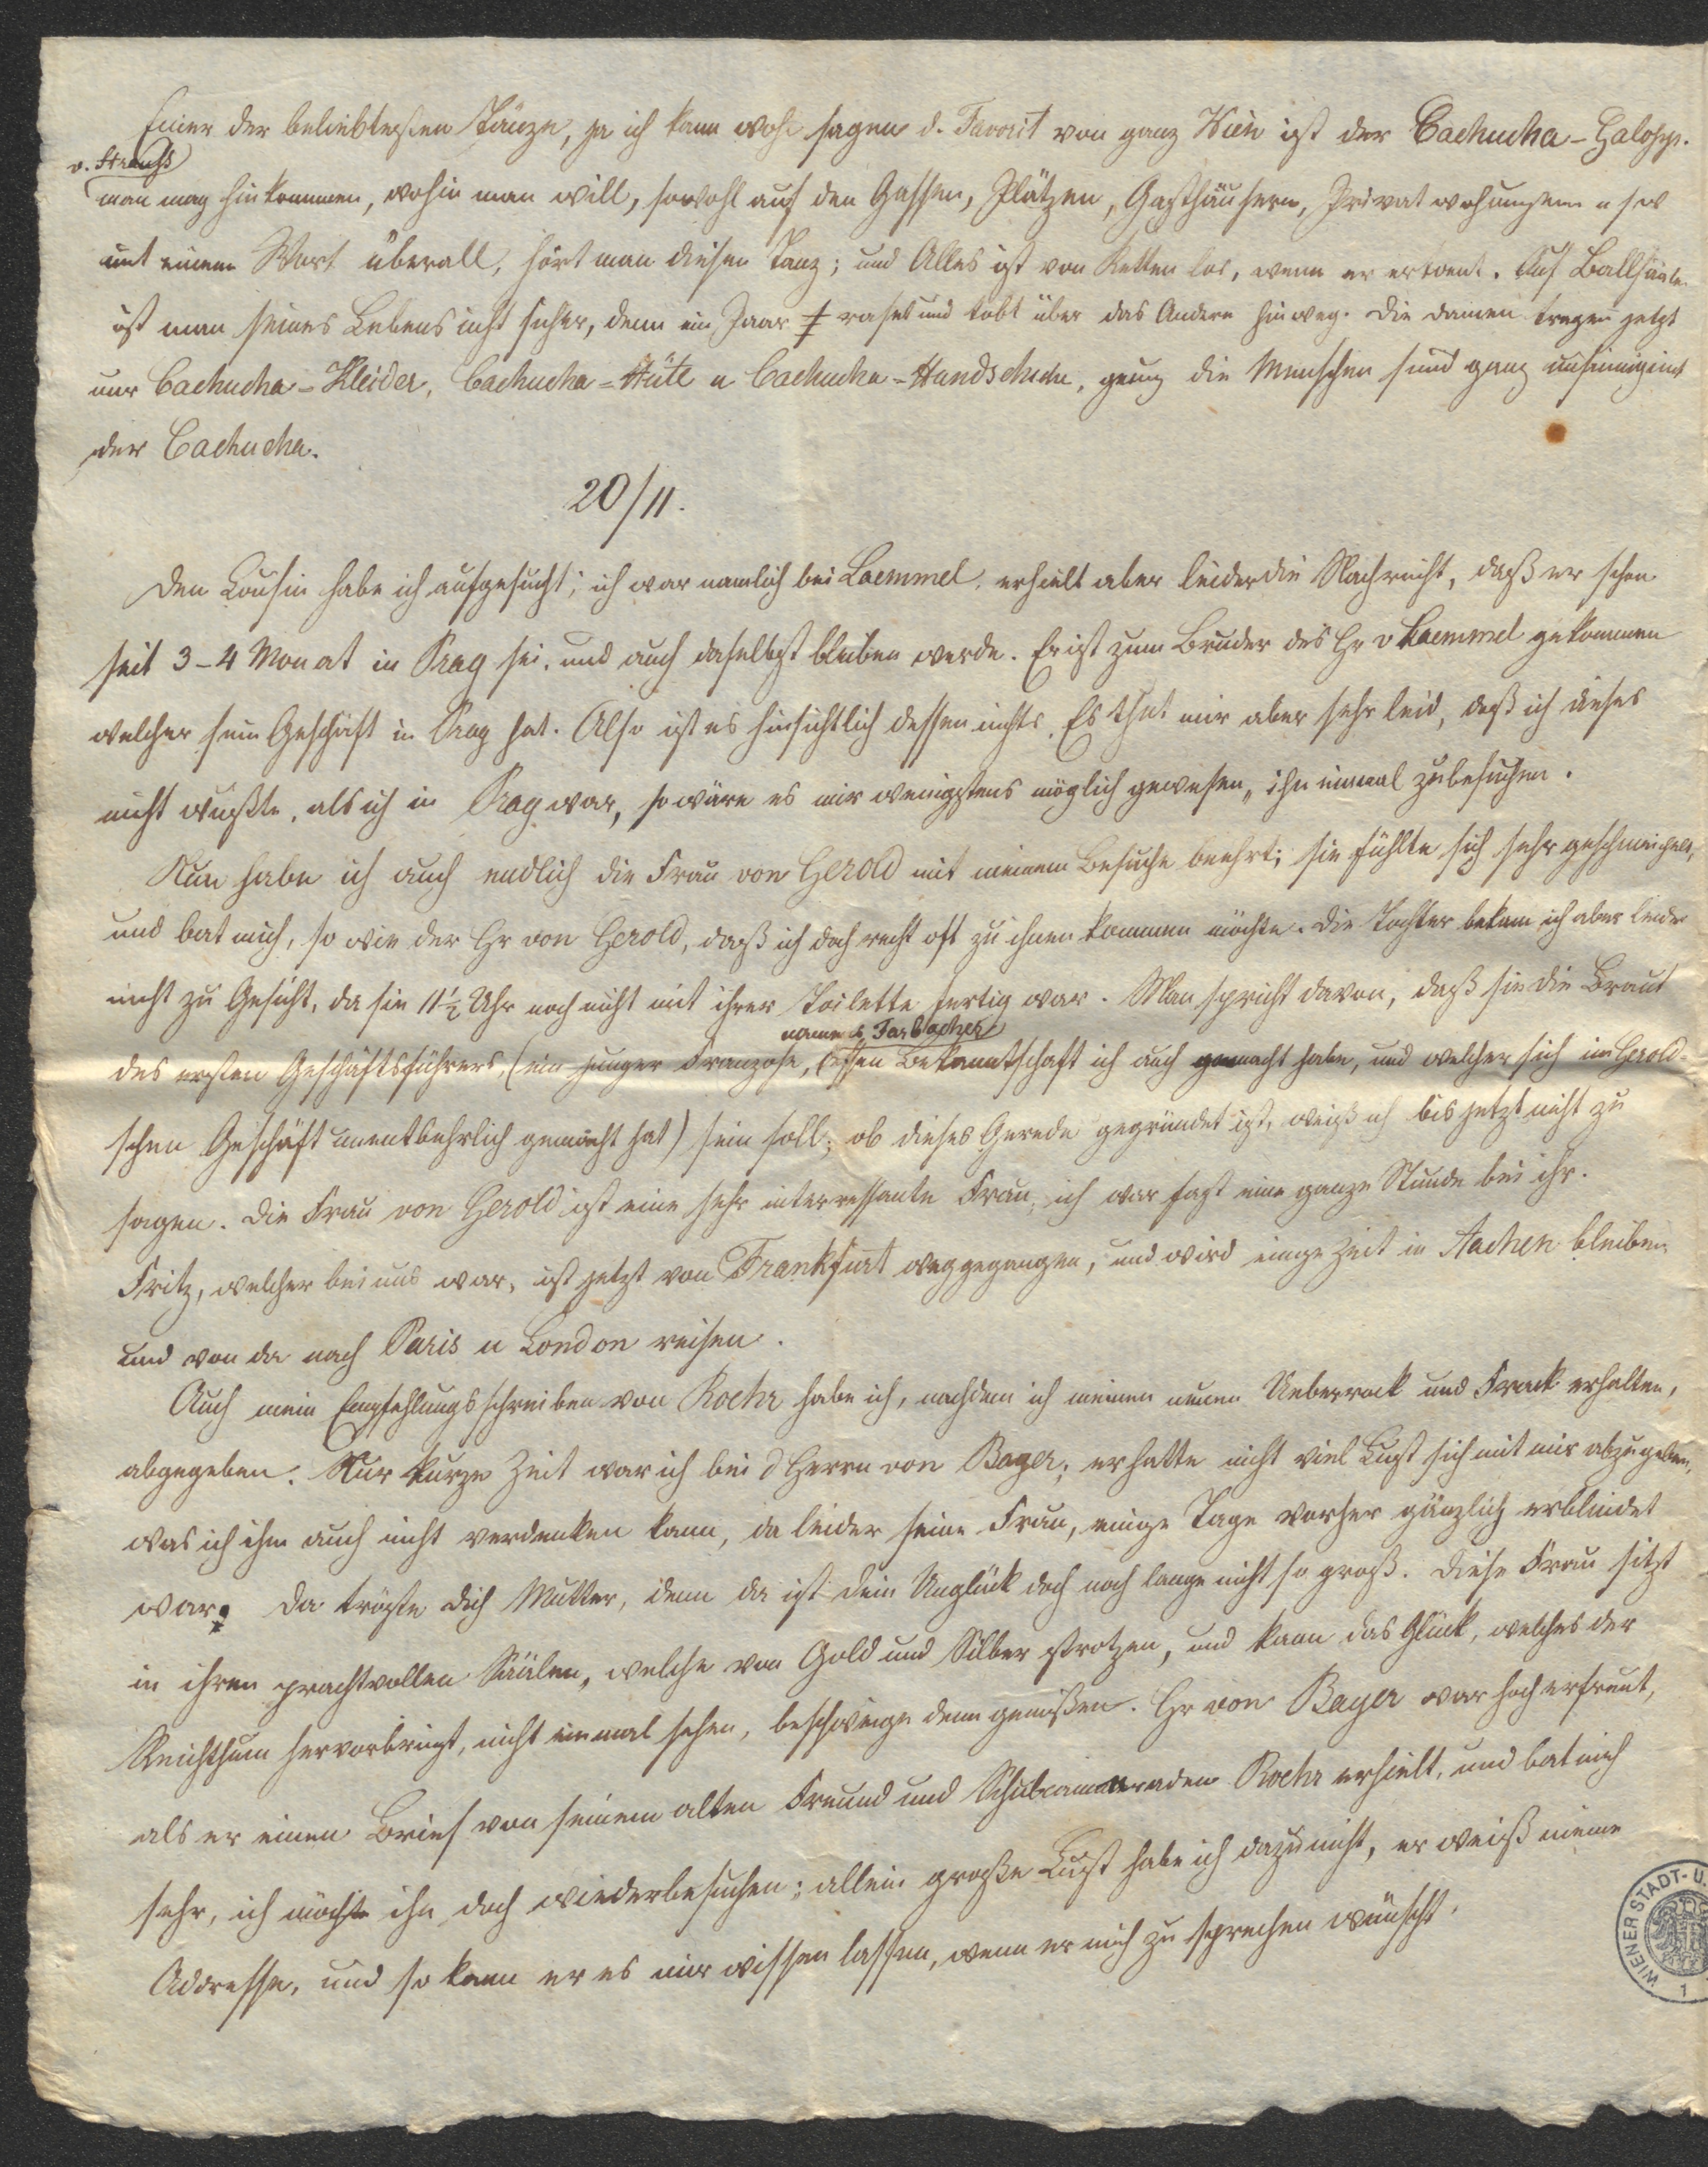 Einer der beliebtesten Tänze, ja ich kann wohl sagen d. Favorit von ganz Wien ist der Cachucha-Galopp.
v. Strauß
man mag hinkommen, wohin man will, sowohl auf den Gassen, Plätzen, Gasthäusern, Privatwohnungen usw
mit einem Wort überall, hört man diesen Tanz; und Alles ist von Ketten los, wenn er ertönt. Auf Ballsäale
ist man seines Lebens nicht sicher, denn ein Paar rast und tobt über das Andere hinweg. Die Damen tragen jetzt
nur Cachucha-Kleider, Cachucha-Hüte u Cachucha-Handschuhe, genug die Menschen sind ganz unsinnig mit
der Cachucha.
20/11.
Den Cousin habe ich aufgesucht; ich war namlich bei Laemmel, erhielt aber leider die Nachricht, daß er schon
seit 3-4 Monat in Prag sei, und auch daselbst bleiben werde. Er ist zum Bruder des Hr v Laemmel gekommen
welcher sein Geschäft in Prag hat. Also ist es hinsichtlich dessen nichts. Es thut mir aber sehr leid, daß ich dieses
nicht wußte, als ich in Prag war, so wäre es mir wenigstens möglich gewesen, ihn einmal zu besuchen.
Nun habe ich auch endlich die Frau von Gerold mit meinem Besuche beehrt; sie fühlte sich sehr geschmeichelt,
und bat mich, so wie der Hr von Gerold, daß ich doch recht oft zu ihnen kommen möchte. Die Tochter bekam ich aber leider
nicht zu Gesicht, da sie 11½ Uhr noch nicht mit ihrer Toilette fertig war. Man spricht davon, daß sie die Braut
namens Farbacher
des ersten Geschäftsführers, (ein junger Franzose, dessen Bekanntschaft ich auch gemacht habe, und welcher sich im Gerold-
schen Geschäft unentbehrlich gemacht hat) sein soll; ob dieses Gerede gegründet ist, weiß ich bis jetzt nicht zu
sagen. Die Frau von Gerold ist eine sehr interressante Frau, ich war fast eine ganze Stunde bei ihr.
Fritz, welcher bei uns war, ist jetzt von Frankfurt weggegangen, und wird einge Zeit in Aachen bleiben
und von da nach Paris u London reisen.
Auch mein Empfehlungsschreiben von Roehr habe ich, nachdem ich meinen neuen Ueberrock und Frack erhalten,
abgegeben. Nur kurze Zeit war ich bei d Herrn von Bayer; er hatte nicht viel Lust sich mit mir abzugeben,
was ich ihm auch nicht verdenken kann, da leider seine Frau, einige Tage vorher gänzlich erblindet
war. Da tröste dich Mutter, denn da ist dein Unglück doch noch lange nicht so groß. Diese Frau sitzt
in ihren prachtvollen Säälen, welche von Gold und Silber strotzen, und kann das Glück, welches der
Reichthum hervorbringt, nicht einmal sehen, beschweige denn genießen. Hr von Bayer war hoch erfreut,
als er einen Brief von seinem alten Freund und Schulcammeraden Roehr erhielt, und bat mich
sehr, ich möchte ihn doch wiederbesuchen; allein große Lust habe ich dazu nicht, er weiß meine
Addresse, und so kann er es mir wissen lassen, wenn er mich zu sprechen wünscht.
WIENER STADT- U.
1